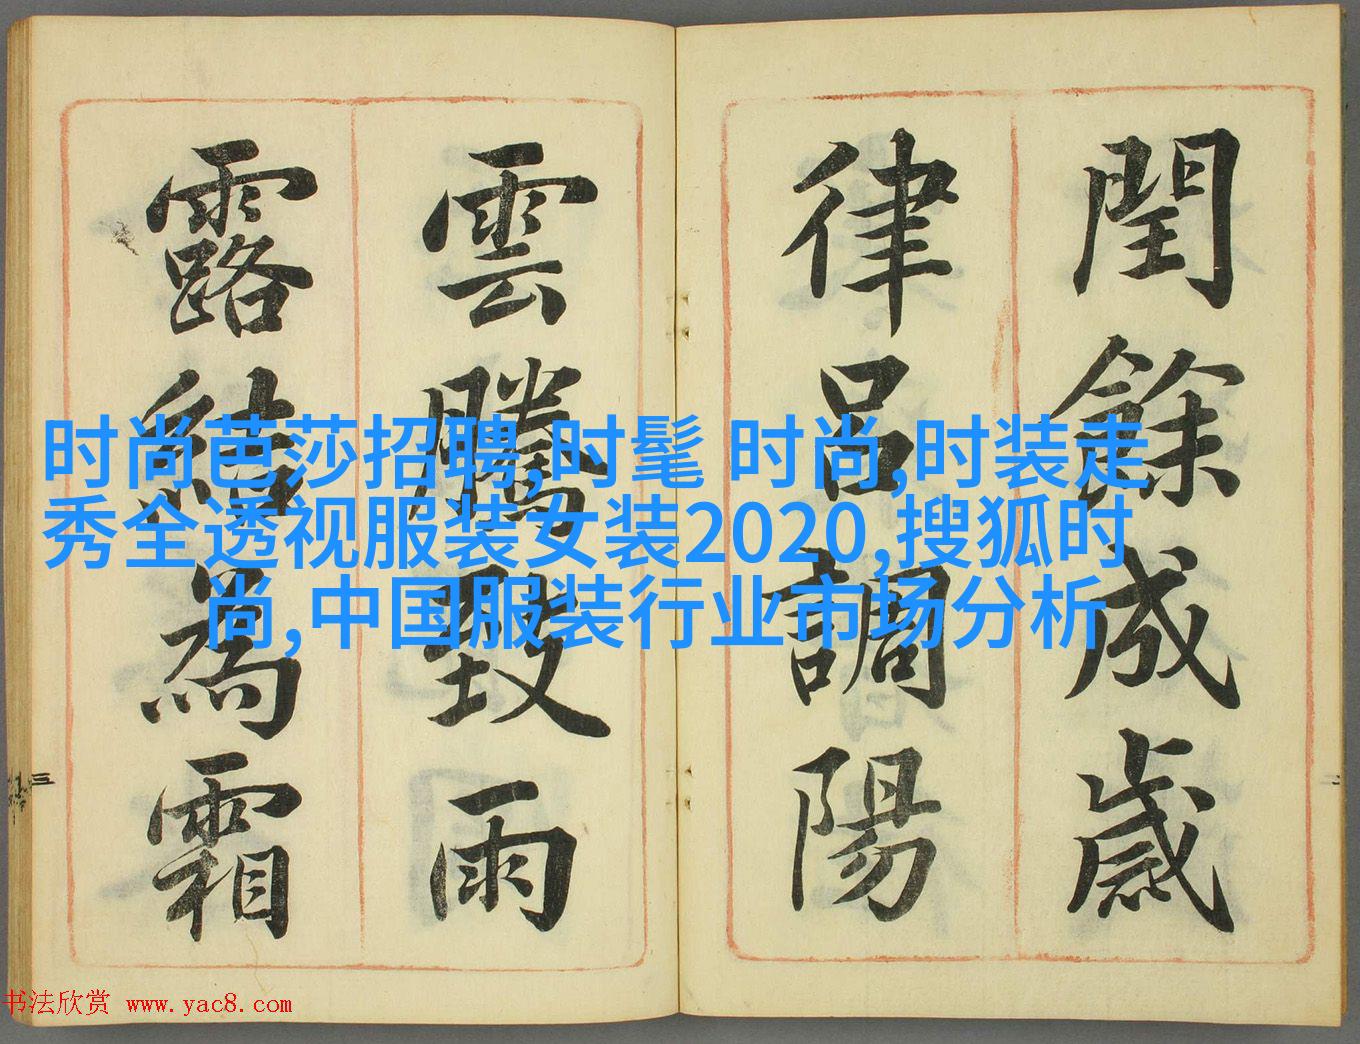 閏餘成歲
律呂調陽
雲騰致雨
露結為霜
时尚芭莎招聘,时髦 时尚,时装走
秀全透视服装女装2020,搜狐时
尚,中国服装行业市场分析
三
二
书法欣赏 www.yac8.com